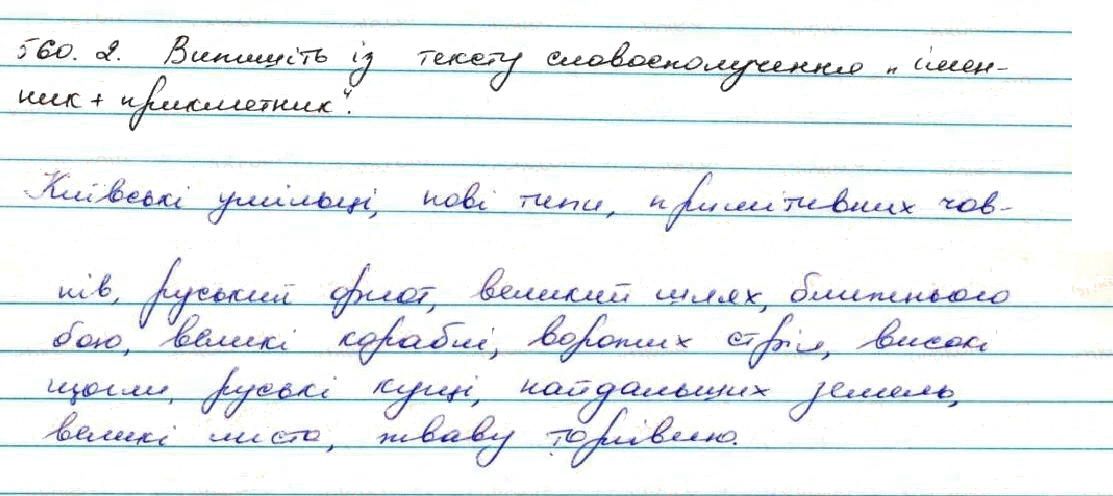 560. 2. Випишіть із тексту словосполучення „ імен-
ник + прикметник".
Київські умільці, нові типи, примітивних чов-
нів, руський флот, великий шлях, ближнього
бою, великі кораблі, ворожих стріл, високі
щогли, руські купці, найдальших земель,
великі міста, жваву торгівлю.